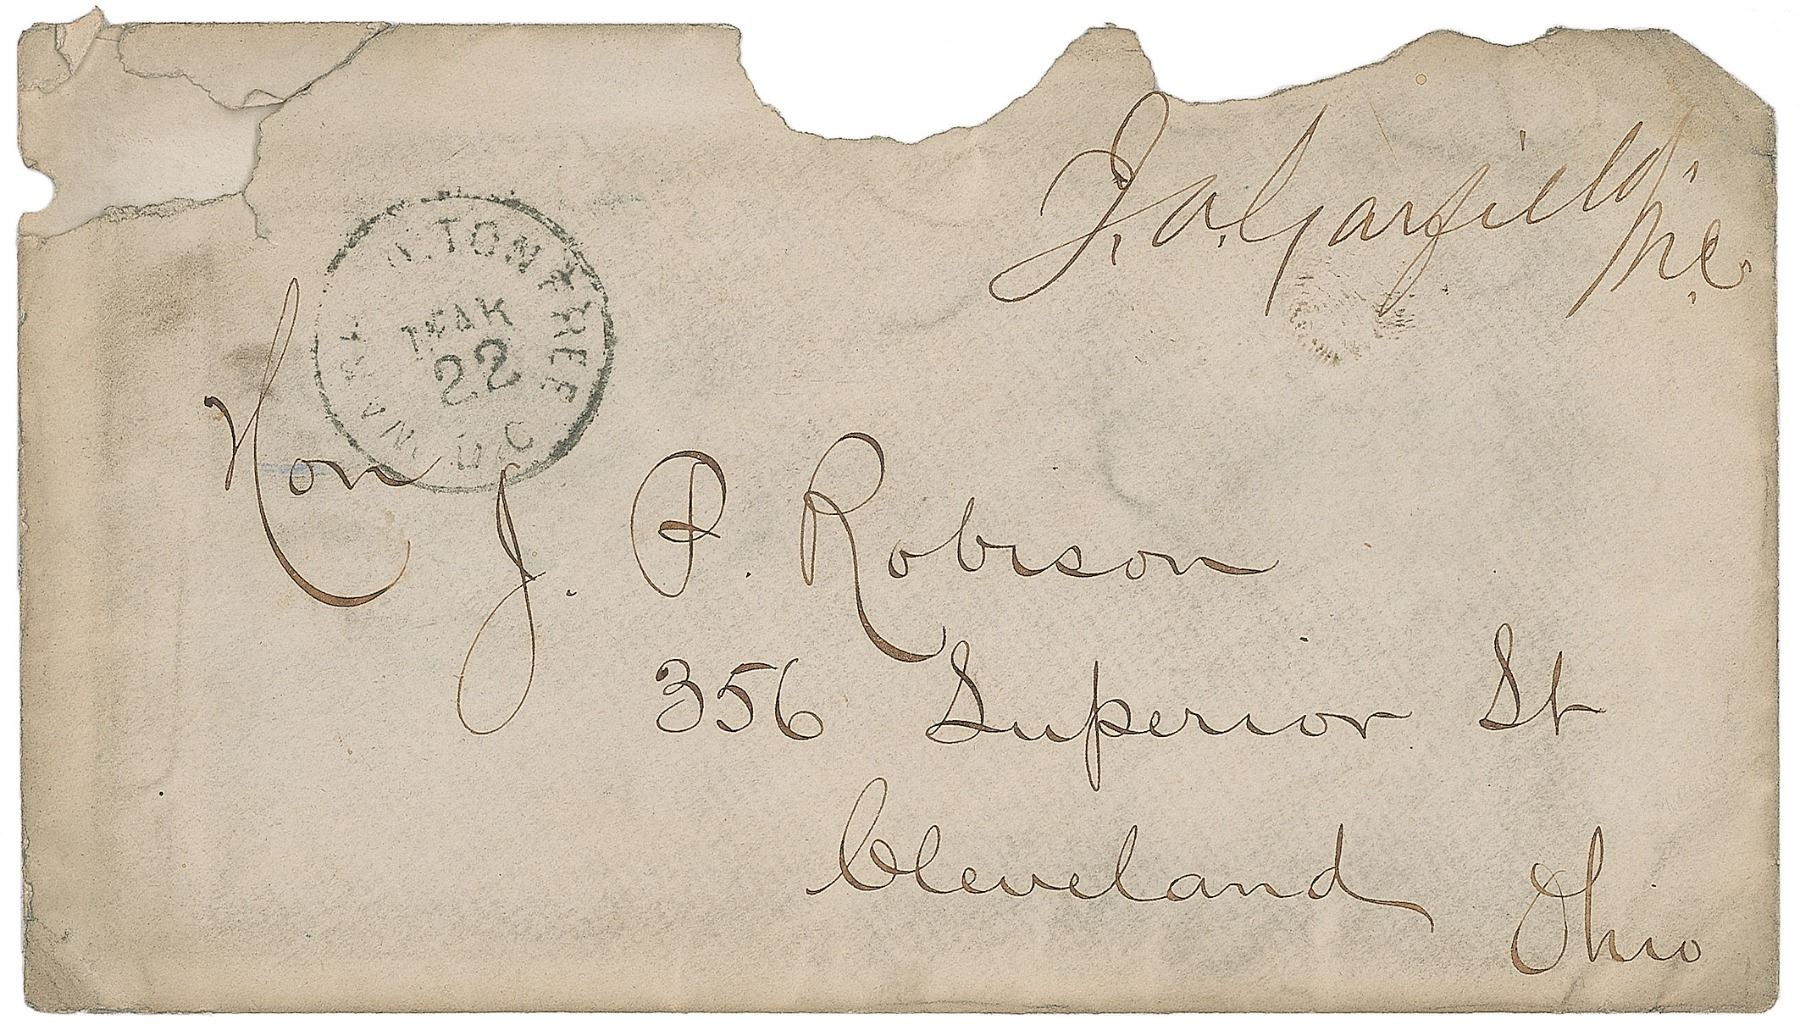 J. A. Garfield
M.C.
WASHINGTON FREE
MAR
22
D.C.
Hon J. P. Robison
356 Superior St
Cleveland Ohio